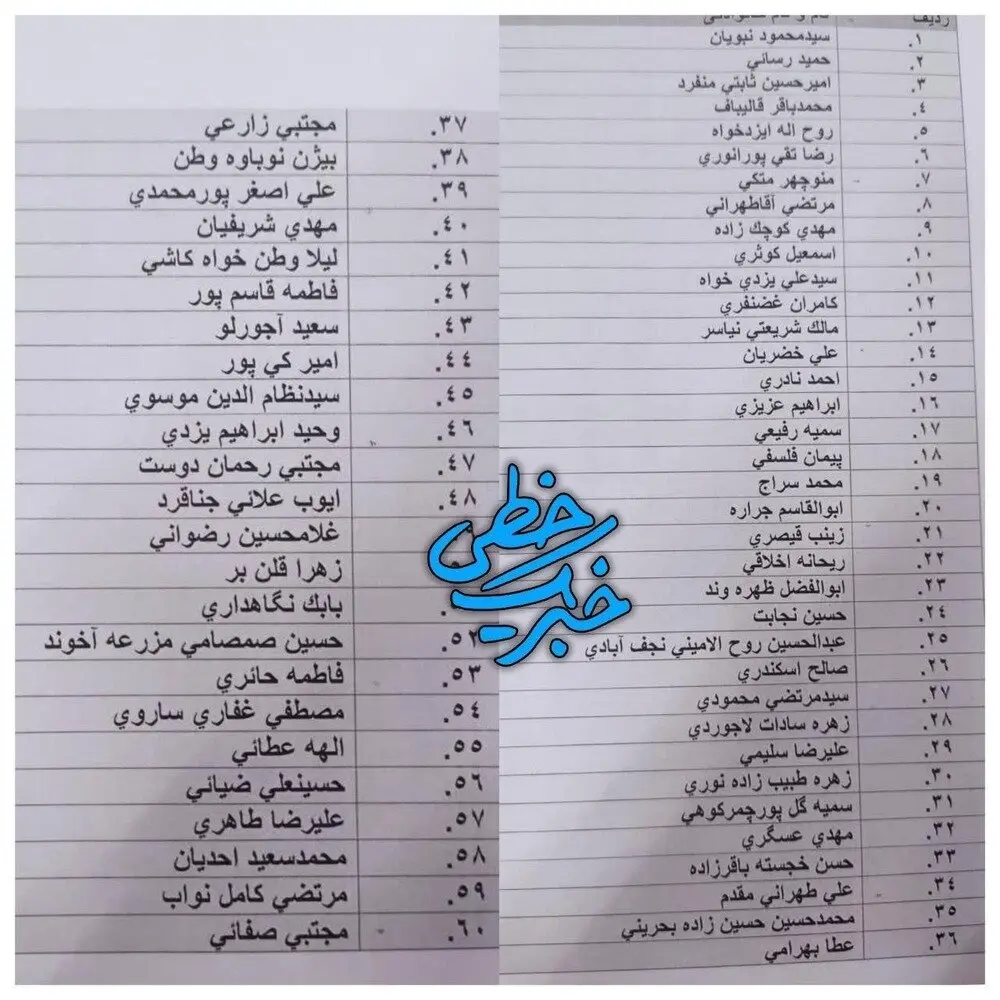 رديف نام و نام خانوادگي
١. سيدمحمود نبويان
٢. حميد رسائي
٣. اميرحسين ثابتي منفرد
٤. محمدباقر قاليباف
٥. روح اله ايزدخواه
٦. رضا تقي پورانوري
٧. منوچهر متكي
٨. مرتضي آقاطهراني
٩. مهدي كوچك زاده
١٠. اسمعيل كوثري
١١. سيدعلي يزدي خواه
١٢. كامران غضنفري
١٣. مالك شريعتي نياسر
١٤. علي خضريان
١٥. احمد نادري
١٦. ابراهيم عزيزي
١٧. سميه رفيعي
١٨. پيمان فلسفي
١٩. محمد سراج
٢٠. ابوالقاسم جراره
٢١. زينب قيصري
٢٢. ريحانه اخلاقي
٢٣. ابوالفضل ظهره وند
٢٤. حسين نجابت
٢٥. عبدالحسين روح الاميني نجف آبادي
٢٦. صالح اسكندري
٢٧. سيدمرتضي محمودي
٢٨. زهره سادات لاجوردي
٢٩. عليرضا سليمي
٣٠. زهره طبيب زاده نوري
٣١. سميه گل پورچمركوهي
٣٢. مهدي عسگري
٣٣. حسن خجسته باقرزاده
٣٤. علي طهراني مقدم
٣٥. محمدحسين حسين زاده بحريني
٣٦. عطا بهرامي
٣٧. مجتبي زارعي
٣٨. بيژن نوباوه وطن
٣٩. علي اصغر پورمحمدي
٤٠. مهدي شريفيان
٤١. ليلا وطن خواه كاشي
٤٢. فاطمه قاسم پور
٤٣. سعيد آجورلو
٤٤. امير كي پور
٤٥. سيدنظام الدين موسوي
٤٦. وحيد ابراهيم يزدي
٤٧. مجتبي رحمان دوست
٤٨. ايوب علائي جناقرد
غلامحسين رضواني
زهرا قلن بر
بابك نگاهداري
٥٢. حسين صمصامي مزرعه آخوند
٥٣. فاطمه حائري
٥٤. مصطفي غفاري ساروي
٥٥. الهه عطائي
٥٦. حسينعلي ضيائي
٥٧. عليرضا طاهري
٥٨. محمدسعيد احديان
٥٩. مرتضي كامل نواب
٦٠. مجتبي صفائي
خبر یک خطی